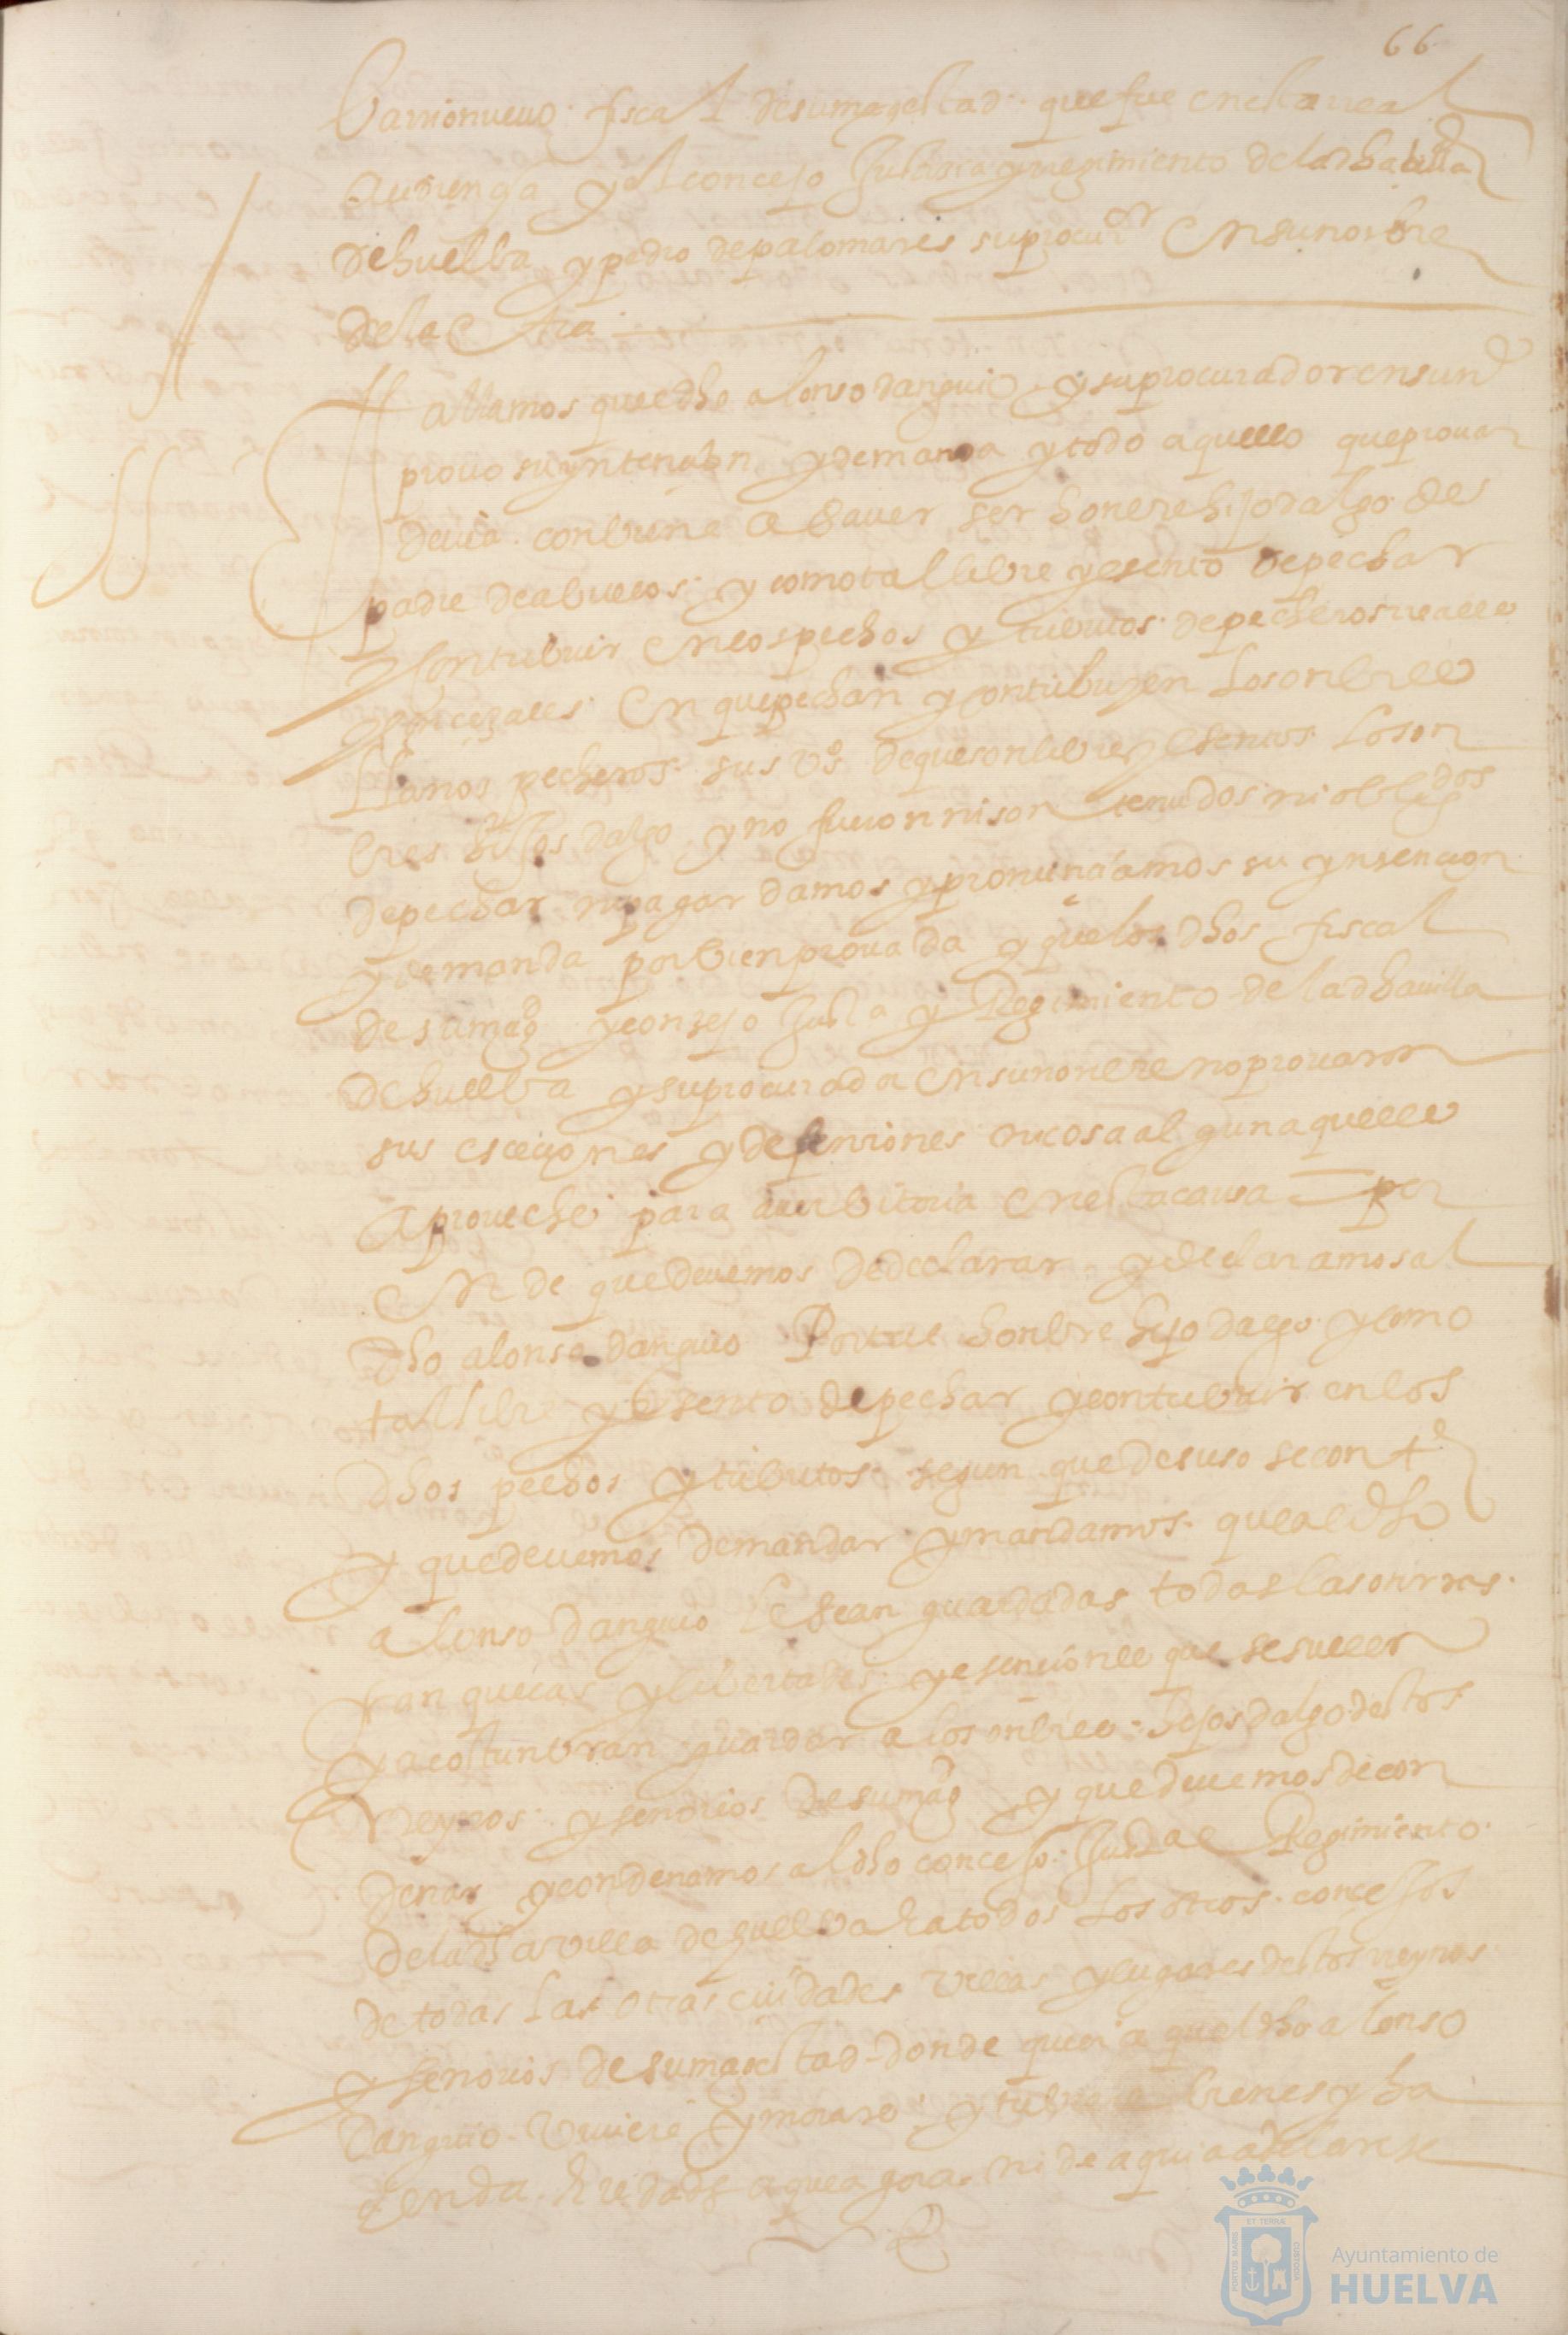 66
barrionuevo fiscal de su magestad que fue en esta real
audiençia y el concejo justiçia y regimiento de la dha villa
de huelba y pedro de palomares su procuor en su nonbre
de la otra
fallamos que el dho alonso danguio y su procurador en su ne
provo su yntençion y demanda y todo aquello que provar
devia conbiene a saver ser honbre hijodalgo de
padre de abuelos y como tal libre y esento de pechar
y contribuir en los pechos y tributos de pecheros reales
y conçegales en que pechan y contribuyen los onbres
llanos pecheros sus vos de que son libres y esentos los on
bres hijos dalgo y no fueron ni son tenudos ni obligdos
de pechar ni pagar damos y pronunciamos su yntencion
y demanda por bien provada y que los dhos fiscal
de su magd y consejo justa y Regimiento de la dha villa
de huelba y su procurador en su nonbre no provaron
sus esceciones y defensiones ni cosa alguna que les
aproveche para aver bitoria en esta causa por
en de que devemos de declarar y declaramos al
dho alonso danguio Por tal honbre hijo dalgo y como
tal libre y esento de pechar y contribuir en los
dhos pechos y tributos segun que de suso se conte
y que devemos de mandar y mandamos que al dho
alonso danguio le sean guardadas todas las onrras
franqueças y libertades y esenciones que se suelen
y acostunbran guardar a los onbres hijos dalgo destos
Reynos y senorios de su magd y que devemos de con
denar y condenamos al dho concejo justa e Regimiento
de la dha villa de huelba e a todos los otros concejos
de todas las otras ciudades villas y lugares destos reynos
y senorios de su magestad donde quier a que el dho alonso
danguio viviere y morare y tubiere bienes y ha
zienda heredada a que agora ni de aqui adelante
Ayuntamiento de
HUELVA
PORTUS MARIS
ET TERRÆ
CUSTODIA